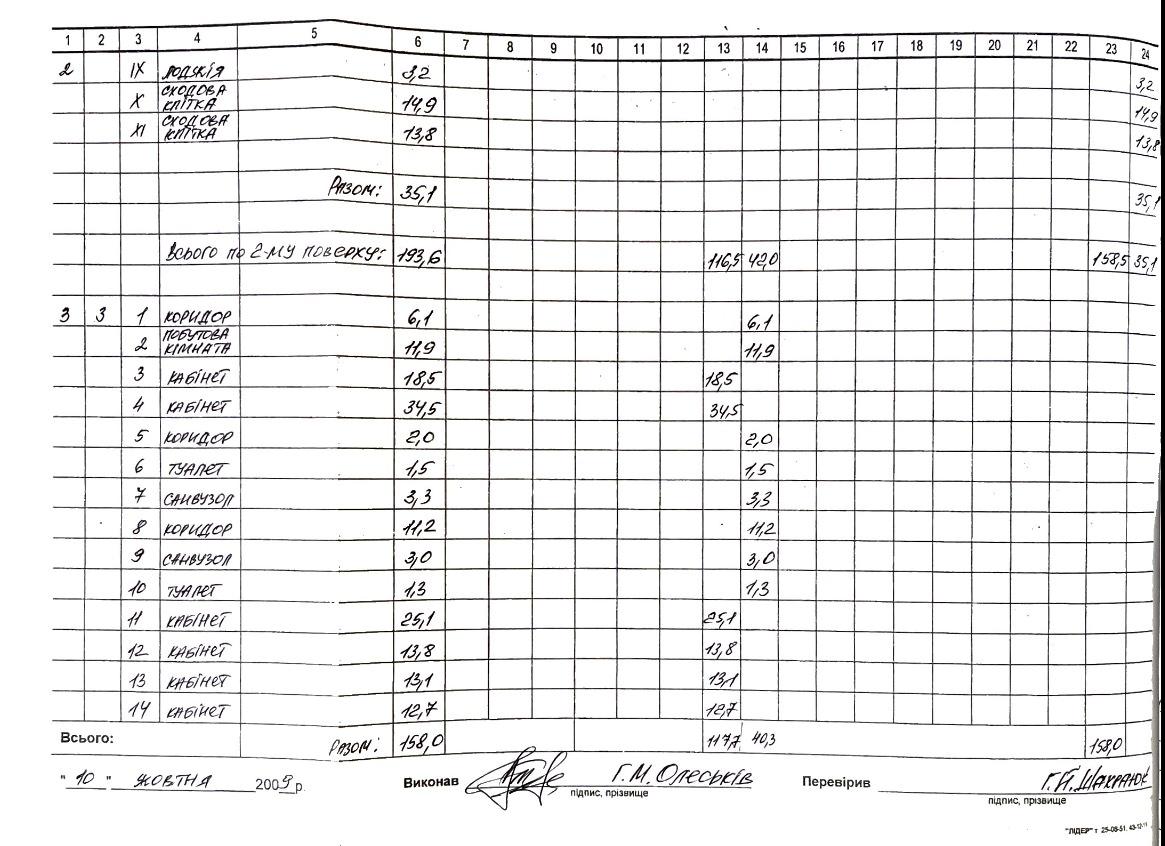 1 2 3 4 5 6 7 8 9 10 11 12 13 14 15 16 17 18 19 20 21 22 23 24
2 IX ЛОДЖІЯ 3,2 3,2
X СХОДОВА КЛІТКА 14,9 14,9
XI СХОДОВА КЛІТКА 13,8 13,8
РАЗОМ: 35,1 35,1
Всього по 2-му поверху: 193,6 116,5 42,0 158,5 35,1
3 3 1 КОРИДОР 6,1 6,1
2 ПОБУТОВА КІМНАТА 11,9 11,9
3 КАБІНЕТ 18,5 18,5
4 КАБІНЕТ 34,5 34,5
5 КОРИДОР 2,0 2,0
6 ТУАЛЕТ 1,5 1,5
7 САНВУЗОЛ 3,3 3,3
8 КОРИДОР 11,2 11,2
9 САНВУЗОЛ 3,0 3,0
10 ТУАЛЕТ 1,3 1,3
11 КАБІНЕТ 25,1 25,1
12 КАБІНЕТ 13,8 13,8
13 КАБІНЕТ 13,1 13,1
14 КАБІНЕТ 12,7 12,7
Всього: РАЗОМ: 158,0 117,7 40,3 158,0
"10" ЖОВТНЯ 2009 р. Виконав Г.М. Олеськів Перевірив
підпис, прізвище підпис, прізвище
"ЛІДЕР" т 25-08-51,